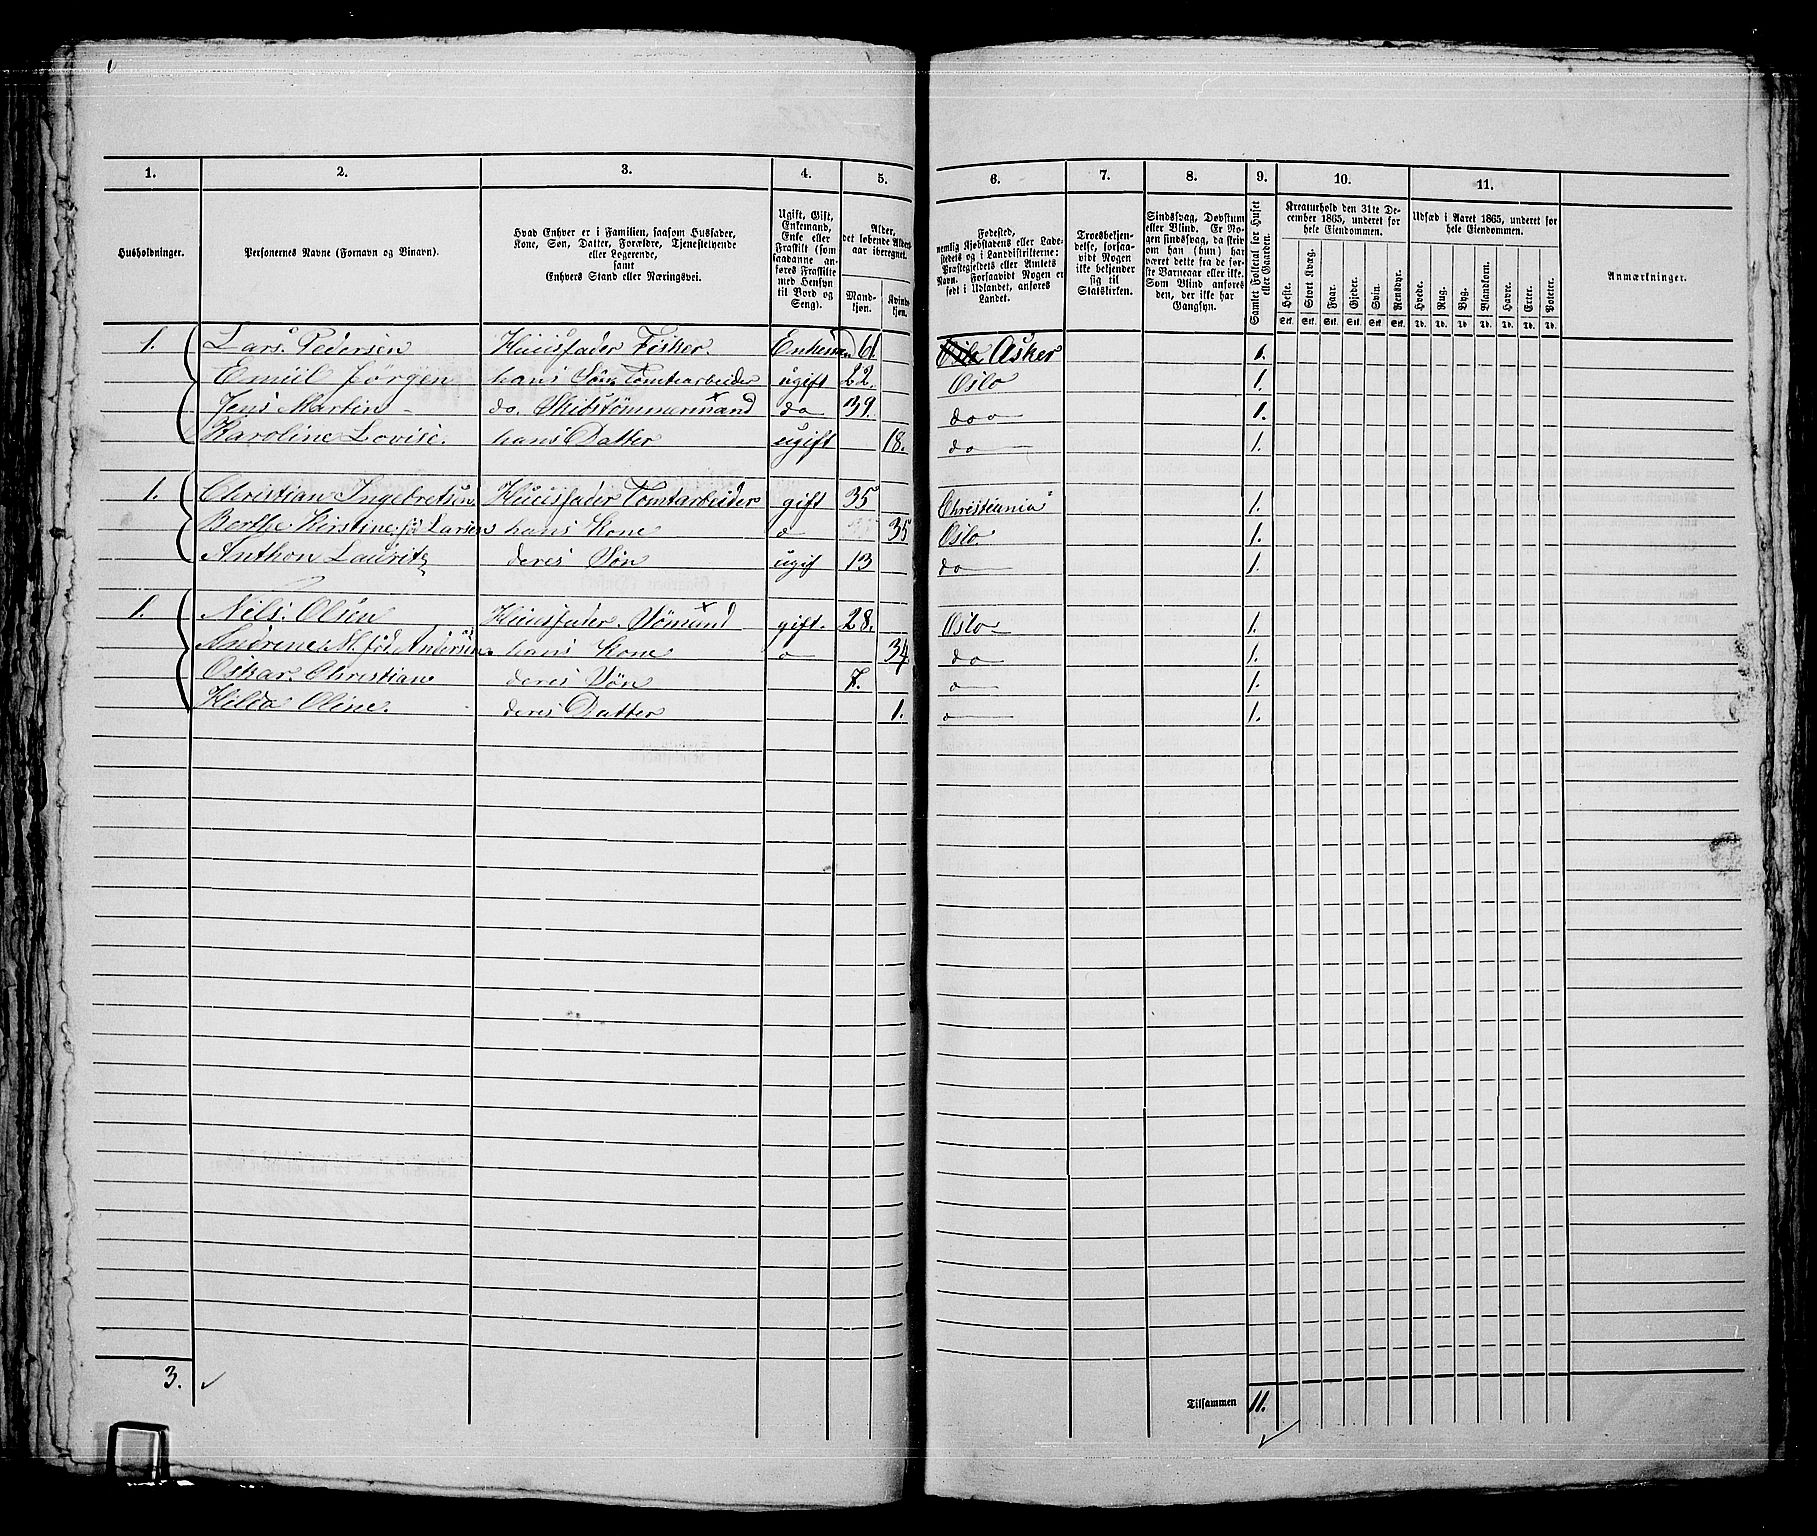 1. 2. 3. 4. 5. 6. 7. 8. 9. 10. 11.
Husholdninger.
Personernes Navne (Fornavn og Binavn).
Hvad Enhver er i Familien, saasom Husfader,
Kone, Søn, Datter, Forældre, Tjenestetyende
eller Logerende,
samt
Enhvers Stand eller Næringsvei.
Ugift, Gift,
Enkemand,
Enke eller
Fraskilt (som
saadanne an-
føres Fraskilte
med Hensyn
til Bord og
Seng).
Alder,
det løbende Alders-
aar iberegnet.
Mand-
kjøn.
Kvind-
kjøn.
Fødested,
nemlig Kjøbstadens eller Lade-
stedets og i Landdistrikterne:
Præstegjeldets eller Amtets
Navn. Forsaavidt Nogen er
født i Udlandet, anføres
Landet.
Troesbekjen-
delse, forsaa-
vidt Nogen
ikke bekjender
sig til
Statskirken.
Sindssvag, Døvstum
eller Blind. Er No-
gen sindssvag, da skriv
om han (hun) har
været dette fra de før-
ste Barneaar eller ikke.
Som Blind ansøres
den, der ikke har
Gangsyn.
Samlet Folketal for Huset
eller Gaarden.
Kreaturhold den 31te De-
cember 1865, underet for
hele Eiendommen.
Heste. Stort Kvæg. Faar. Gjeder. Svin. Rensdyr.
Stk. Stk. Stk. Stk. Stk. Stk.
Udsæd i Aaret 1865, underet for
hele Eiendommen.
Hvede. Rug. Byg. Blandkorn. Havre. Erter. Poteter.
Td. Td. Td. Td. Td. Td. Td.
Anmærkninger.
1. Lars Pedersen Huusfader Fisker. Enkemand 61. Asker 1.
Emiil Jørgen hans Søn Tomtearbeider ugift 22. Oslo 1.
Jens Martin do. Skibstømmermand do 39. do 1.
Karoline Lovise. hans Datter ugift 18. do 1.
1. Christian Ingebretsen Huusfader Tomtarbeider gift 35 Christiania 1.
Berthe Kirstine, fød Larsen hans Kone o 35 Oslo 1.
Anthon Lauritz deres Søn ugif 13 do 1.
1. Nils. Olsen Huusfader. Sømand gift. 28. Oslo 1.
Andrene M. fød Andersen. hans Kone o 34 do 1.
Oskar. Christian deres Søn 7. o 1.
Hilda Oline. deres Datter 1. o 1.
3.
Tilsammen 11.